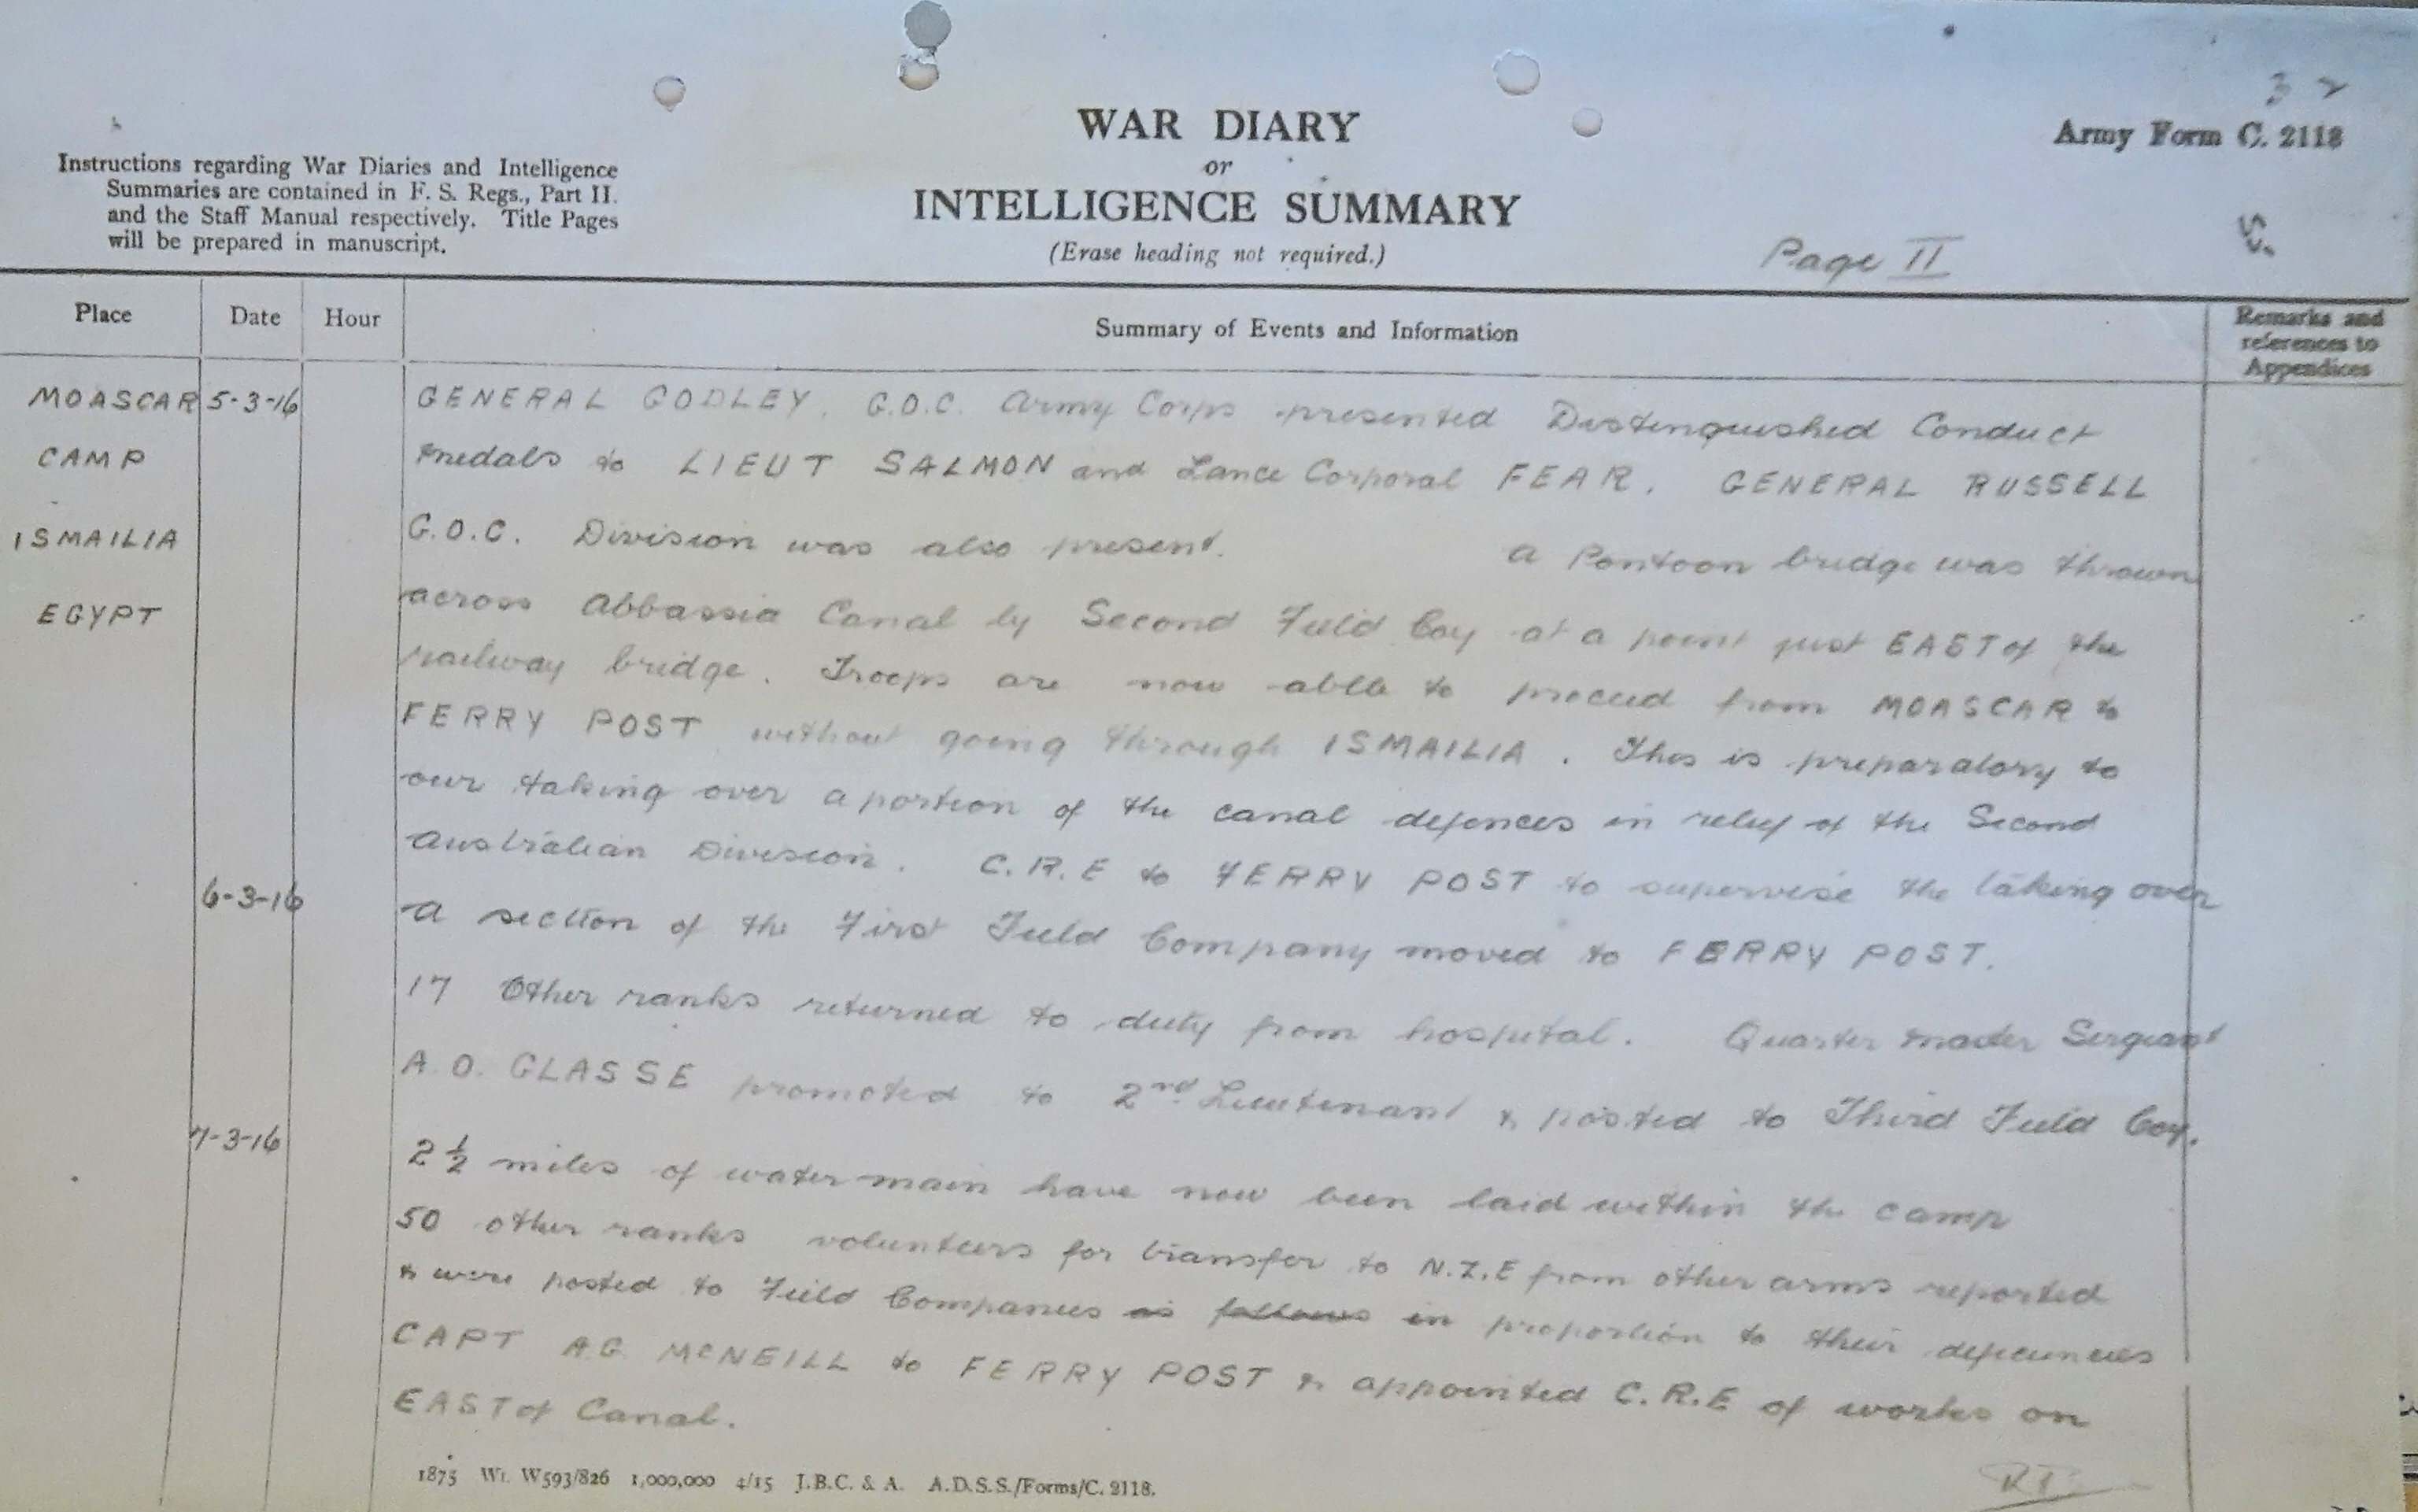 32
Army Form C. 2118
WAR DIARY
or
INTELLIGENCE SUMMARY
(Erase heading not required.)
Instructions regarding War Diaries and Intelligence
Summaries are contained in F. S. Regs., Part II.
and the Staff Manual respectively. Title Pages
will be prepared in manuscript.
Page II
Place Date Hour Summary of Events and Information Remarks and references to Appendices
MOASCAR 5-3-16 GENERAL GODLEY. G.O.C. Army Corps presented Distinguished Conduct
CAMP medals to LIEUT SALMON and Lance Corporal FEAR. GENERAL RUSSELL
ISMAILIA G.O.C. Division was also present. A Pontoon bridge was thrown
EGYPT across Abbassia Canal by Second Field Coy at a point just EAST of the
railway bridge. Troops are now able to proceed from MOASCAR to
FERRY POST without going through ISMAILIA. This is preparatory to
our taking over a portion of the canal defences in relief of the Second
Australian Division. C.R.E to FERRY POST to supervise the taking over
6-3-16 A section of the First Field Company moved to FERRY POST.
17 Other ranks returned to duty from hospital. Quarter Master Sergeant
A.O. GLASSE promoted to 2nd Lieutenant & posted to Third Field Coy.
7-3-16 2½ miles of water main have now been laid within the camp
50 other ranks volunteers for transfer to N.Z.E from other arms reported
& were posted to Field Companies as follows in proportion to their deficiencies
CAPT AG McNEILL to FERRY POST & appointed C.R.E of works on
EAST of Canal.
1875 Wt. W593/826 1,000,000 4/15 J.B.C. & A. A.D.S.S./Forms/C. 2118.